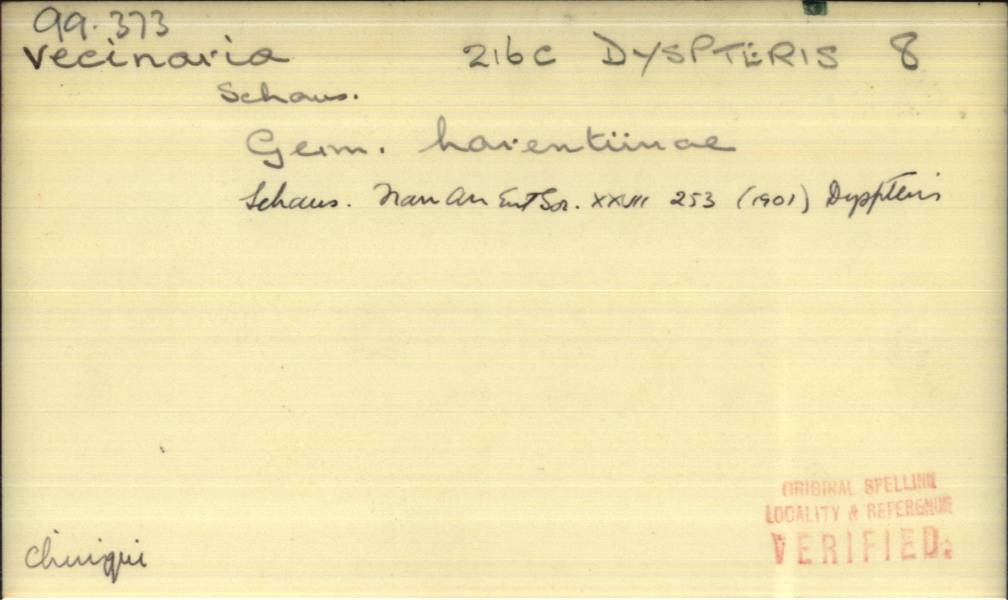 99.373
vecinaria 216C DYSPTERIS 8
Schaus.
Geom. larentiinae
Schaus. Tran Am Ent Soc. XXVII 253 (1901) Dyspteris
ORIGINAL SPELLING
LOCALITY & REFERENCE
VERIFIED.
Chiriqui